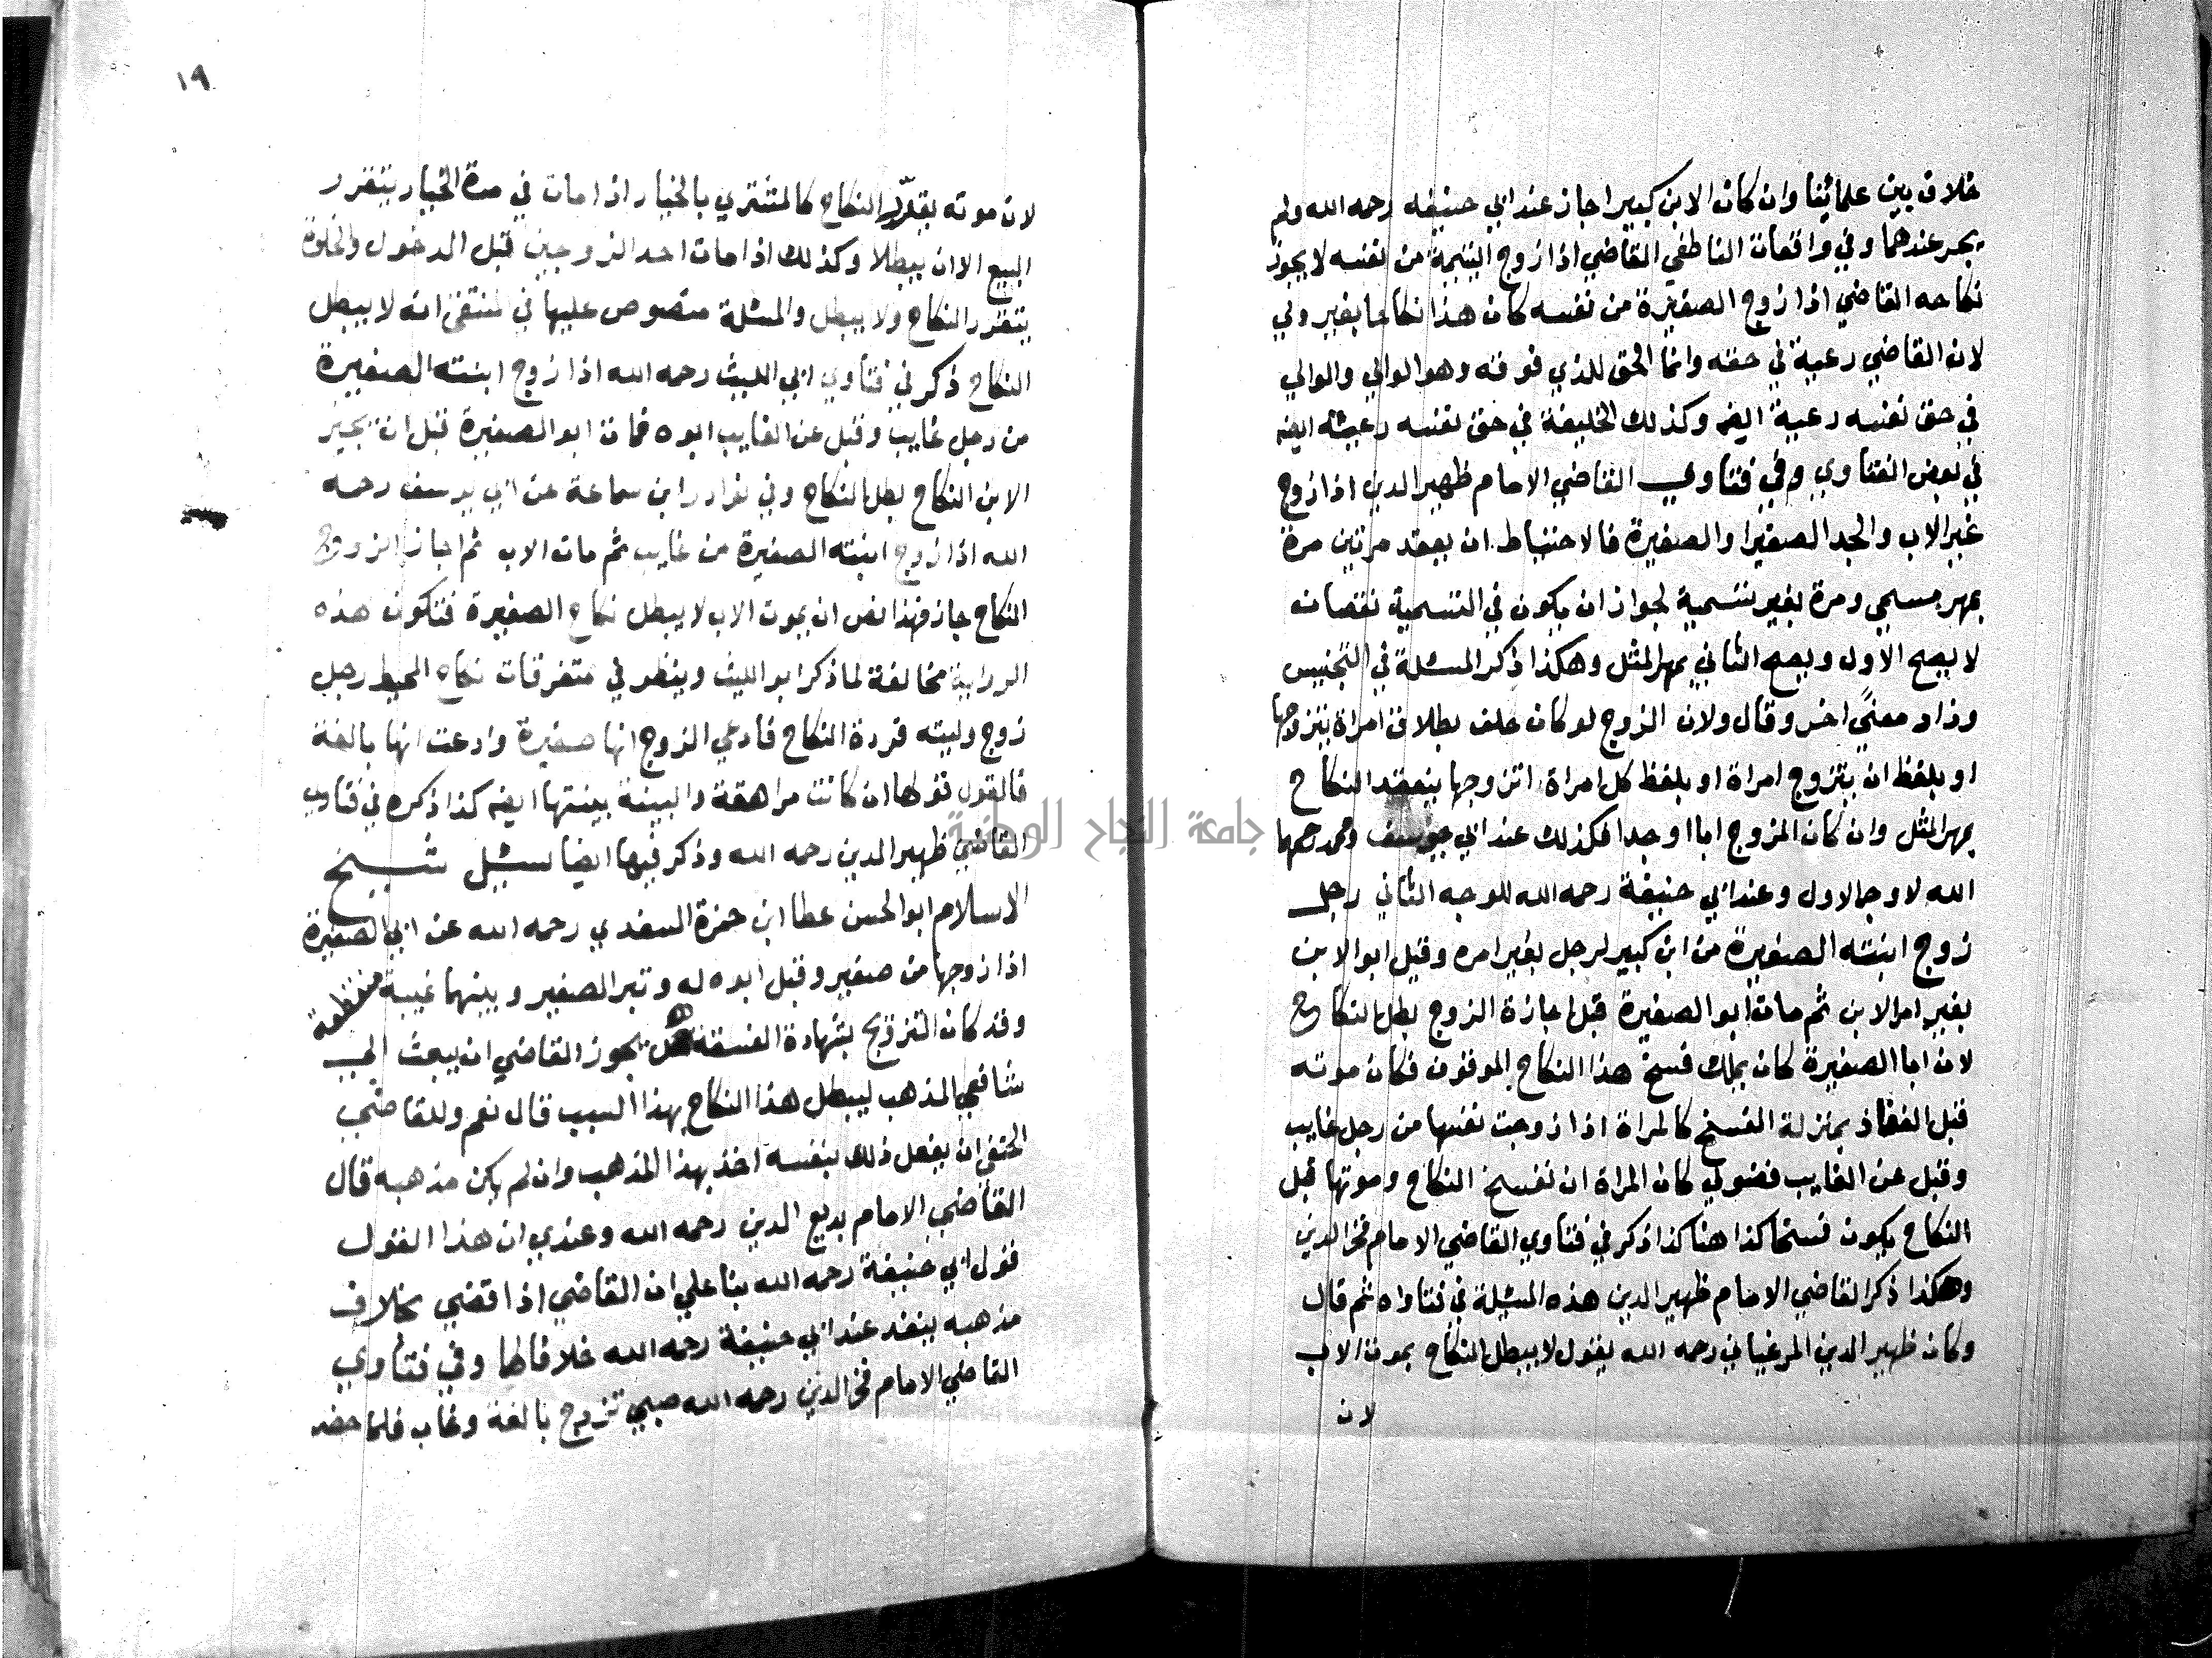 خلاف بين علمائنا وان كان الابن كبيرا جاز عند ابي حنيفه رحمه الله ولم
يجز عندهما وفي واقعات الناطفي القاضي اذا زوج اليتيمة من نفسه لا يجوز
نكاحه القاضي اذا زوج الصغيرة من نفسه كان هذا نكاحا بغير ولي
لان القاضي رعية في حقه وانما الحق للذي فوقه وهو الوالي والوالي
في حق نفسه رعية ايضه وكذلك الخليفة في حق نفسه رعية ايضه
في بعض الفتاوي وفي فتاوي القاضي الامام ظهير الدين اذا زوج
غير الاب والجد الصغير او الصغيرة فالاحتياط ان يعقد مرتين مرة
بمهر مسمي ومرة بغير تسمية لجواز ان يكون في التسمية نقصانه
لا يصح الاول ويصح الثاني بمهر المثل وهكذا ذكر المسئلة في التجنيس
وزاد معنيً اخر وقال ولان الزوج لو كان حلف بطلاق امراة يتزوجها
او بلفظ ان يتزوج امراة او بلفظ كل امراة اتزوجها ينعقد النكاح
بمهر المثل وان كان المزوج ابا او جدا فكذلك عند ابي يوسف ومحمد رحمهما
الله لاوجه الاول وعند ابي حنيفة رحمه الله للوجه الثاني رجل
زوج ابنته الصغيرة من ابن كبير لرجل بغير امره وقبل ابو الابن
بغير امر الابن ثم مات ابو الصغيرة قبل اجازة الزوج بطل النكاح
لان ابا الصغيرة كان يملك فسخ هذا النكاح الموقوف فكان موته
قبل النفاذ بمنزلة الفسخ كالمراة اذا زوجت نفسها من رجل غايب
وقبل عن الغايب فضولي كان المراة ان تفسخ النكاح وموتها قبل
النكاح يكون فسخا كذا هنا كذا ذكر في فتاوي القاضي الامام فخر الدين
وهكذا ذكر القاضي الامام ظهير الدين هذه المسئلة في فتاواه ثم قال
وكان ظهير الدين المرغيناني رحمه الله يقول لا يبطل النكاح بموت الاب
لان
١٩
لان موته يقرّر النكاح كالمشتري بالخيار اذا مات في مدة الخيار يتقرر
البيع الا ان يبطلا وكذلك اذا مات احد الزوجين قبل الدخول والخلوة
يتقرر النكاح ولا يبطل والمسئلة منصوص عليها في المنتقى انه لا يبطل
النكاح ذكر في فتاوي ابي الليث رحمه الله اذا زوج ابنته الصغيرة
من رجل غايب وقبل عن الغايب ابوه فمات ابو الصغيرة قبل ان يجيز
الابن النكاح بطل النكاح وفي نوادر ابن سماعة عن ابي يوسف رحمه
الله اذا زوج ابنته الصغيرة من غايب ثم مات الاب ثم اجاز الزوج
النكاح جاز فهذا نص ان بموت الاب لا يبطل نكاح الصغيرة فتكون هذه
الرواية مخالفة لما ذكر ابو الليث وينظر في متفرقات نكاح المحيط رجل
زوج وليته فردة النكاح فادعي الزوج انها صغيرة وادعت انها بالغة
فالقول قولها ان كانت مراهقة والبينة بينتها ايضه كذا ذكره في فتاوي
القاضي ظهير الدين رحمه الله وذكر فيها ايضا سئيل شيخ
الاسلام ابو الحسن عطا ابن حمزة السغدي رحمه الله عن ابي الصغيرة
اذا زوجها من صغير وقبل ابوه له وكبر الصغير وبينهما غيبة منقطعة
وقد كان التزويج بشهادة الفسقه هل يجوز القاضي ان يبعث الي
شافعي المذهب ليبطل هذا النكاح بهذا السبب قال نعم وللقاضي
الحنفي ان يفعل ذلك بنفسه اخذ بهذا المذهب وان لم يكن مذهبه قال
القاضي الامام بديع الدين رحمه الله وعندي ان هذا القول
قول ابي حنيفة رحمه الله بنا علي ان القاضي اذا قضي بخلاف
مذهبه ينفذ عند ابي حنيفة رحمه الله خلافا لهما وفي فتاوي
القاضي الامام فخر الدين رحمه الله صبي تزوج بالغة وغاب فلما حضر
جامعة النجاح الوطنية